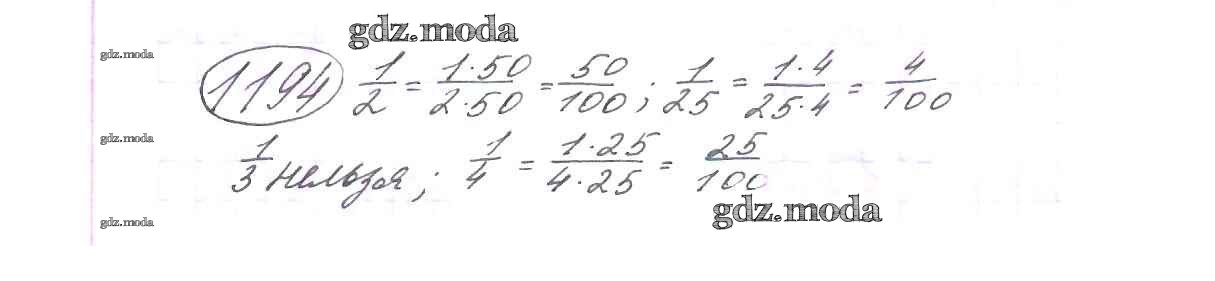 gdz.moda
gdz.moda
1194 1/2 = 1·50/2·50 = 50/100; 1/25 = 1·4/25·4 = 4/100
gdz.moda
1/3 нельзя; 1/4 = 1·25/4·25 = 25/100
gdz.moda
gdz.moda